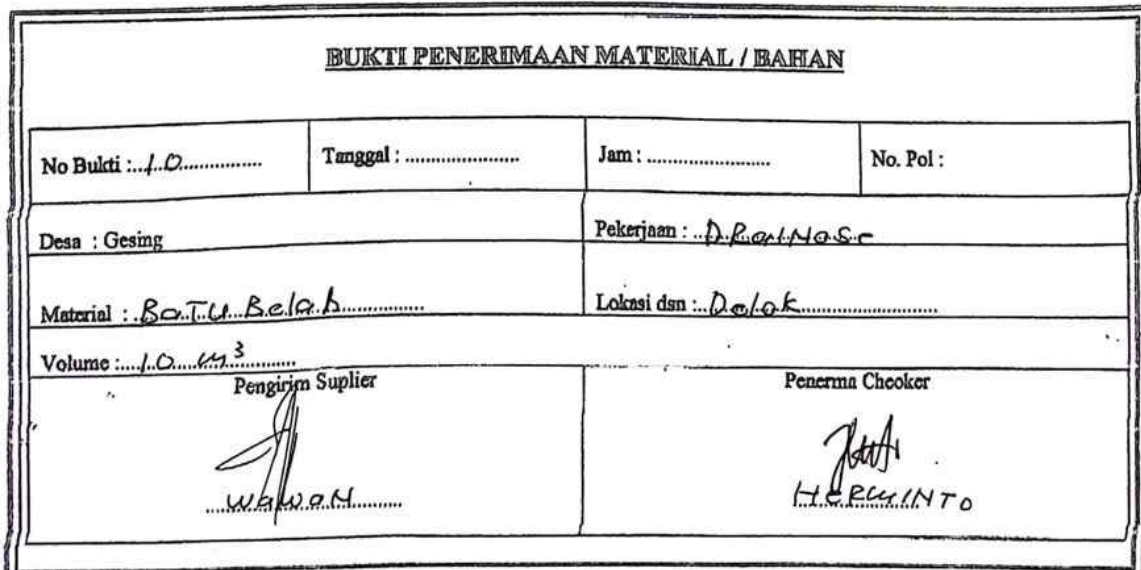 BUKTI PENERIMAAN MATERIAL / BAHAN
No Bukti :....10............... Tanggal : ...................... Jam : ........................ No. Pol :
Desa : Gesing Pekerjaan : ..DRaiNase
Material : .BaTu Belah............... Lokasi dsn :..Delok...........................
Volume :....10 m³............
Pengirim Suplier Penerma Cheoker
WaWaN HERWINTO